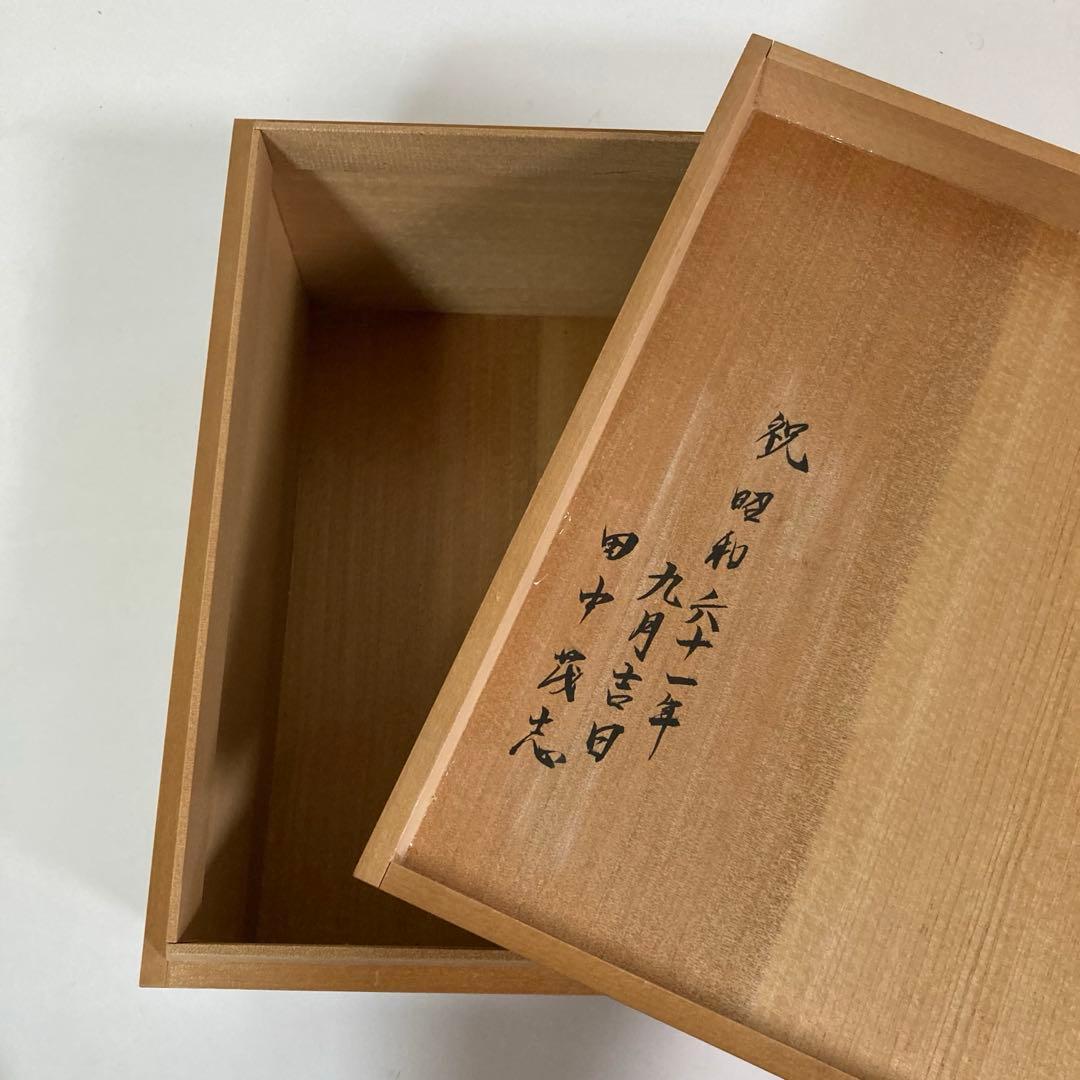 祝 昭和六十一年
九月吉日
田中茂志